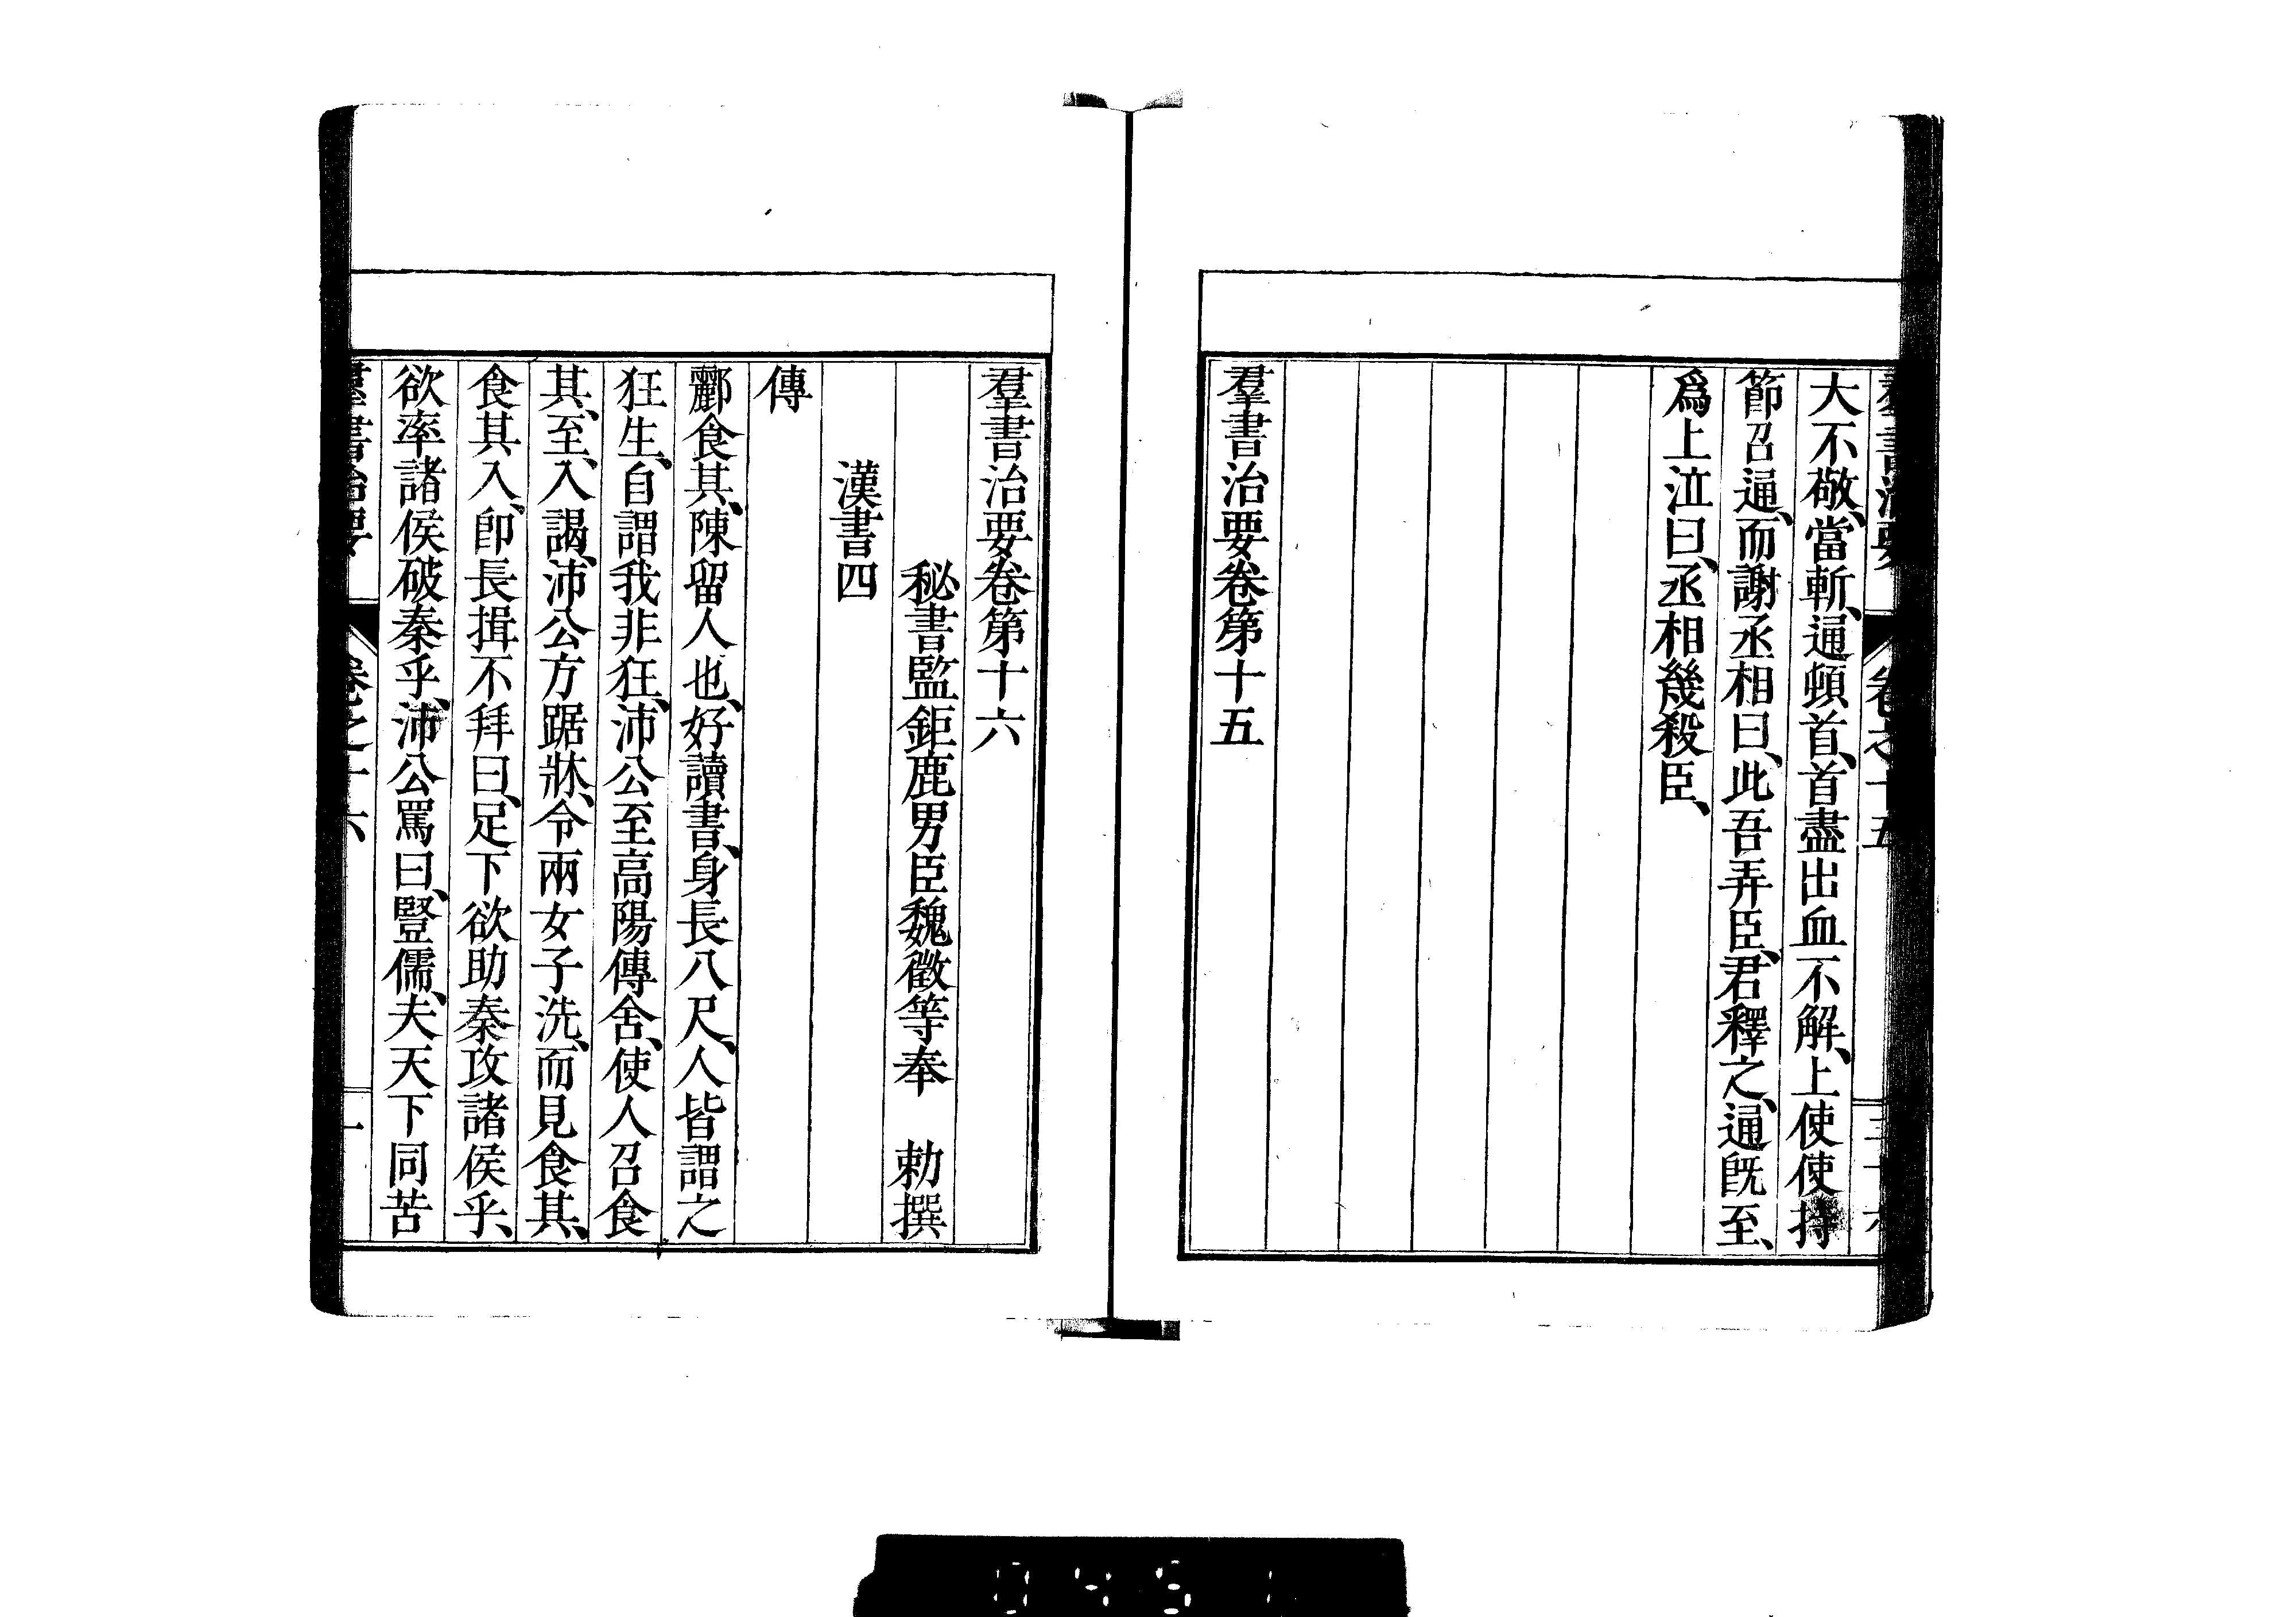 羣書治要 卷之十五 三十六
大不敬、當斬、通頓首、首盡出血不解、上使使持
節召通、而謝丞相曰、此吾弄臣、君釋之、通既至、
爲上泣曰、丞相幾殺臣、
羣書治要卷第十五
羣書治要卷第十六
秘書監鉅鹿男臣魏徵等奉 勅撰
漢書四
傳
酈食其、陳留人也、好讀書、身長八尺、人皆謂之
狂生、自謂我非狂、沛公至高陽傳舍、使人召食
其、至、入謁、沛公方踞牀、令兩女子洗、而見食其、
食其入、卽長揖不拜曰、足下欲助秦攻諸侯乎、
欲率諸侯破秦乎、沛公罵曰、豎儒、夫天下同苦
羣書治要 卷之十六 一